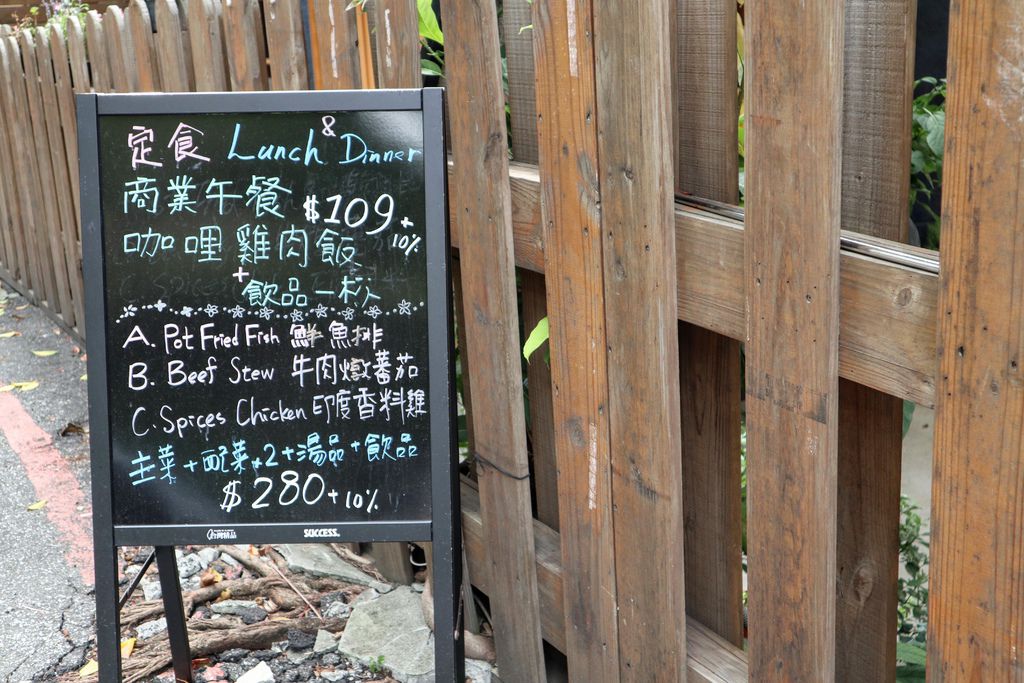 定食 Lunch & Dinner
商業午餐 $109 +10%
咖哩雞肉飯
+飲品一杯
A. Pot Fried Fish 鮮魚排
B. Beef Stew 牛肉燉蕃茄
C. Spices Chicken 印度香料雞
主菜+配菜*2+湯品+飲品
$280+10%
台灣精品 SUCCESS